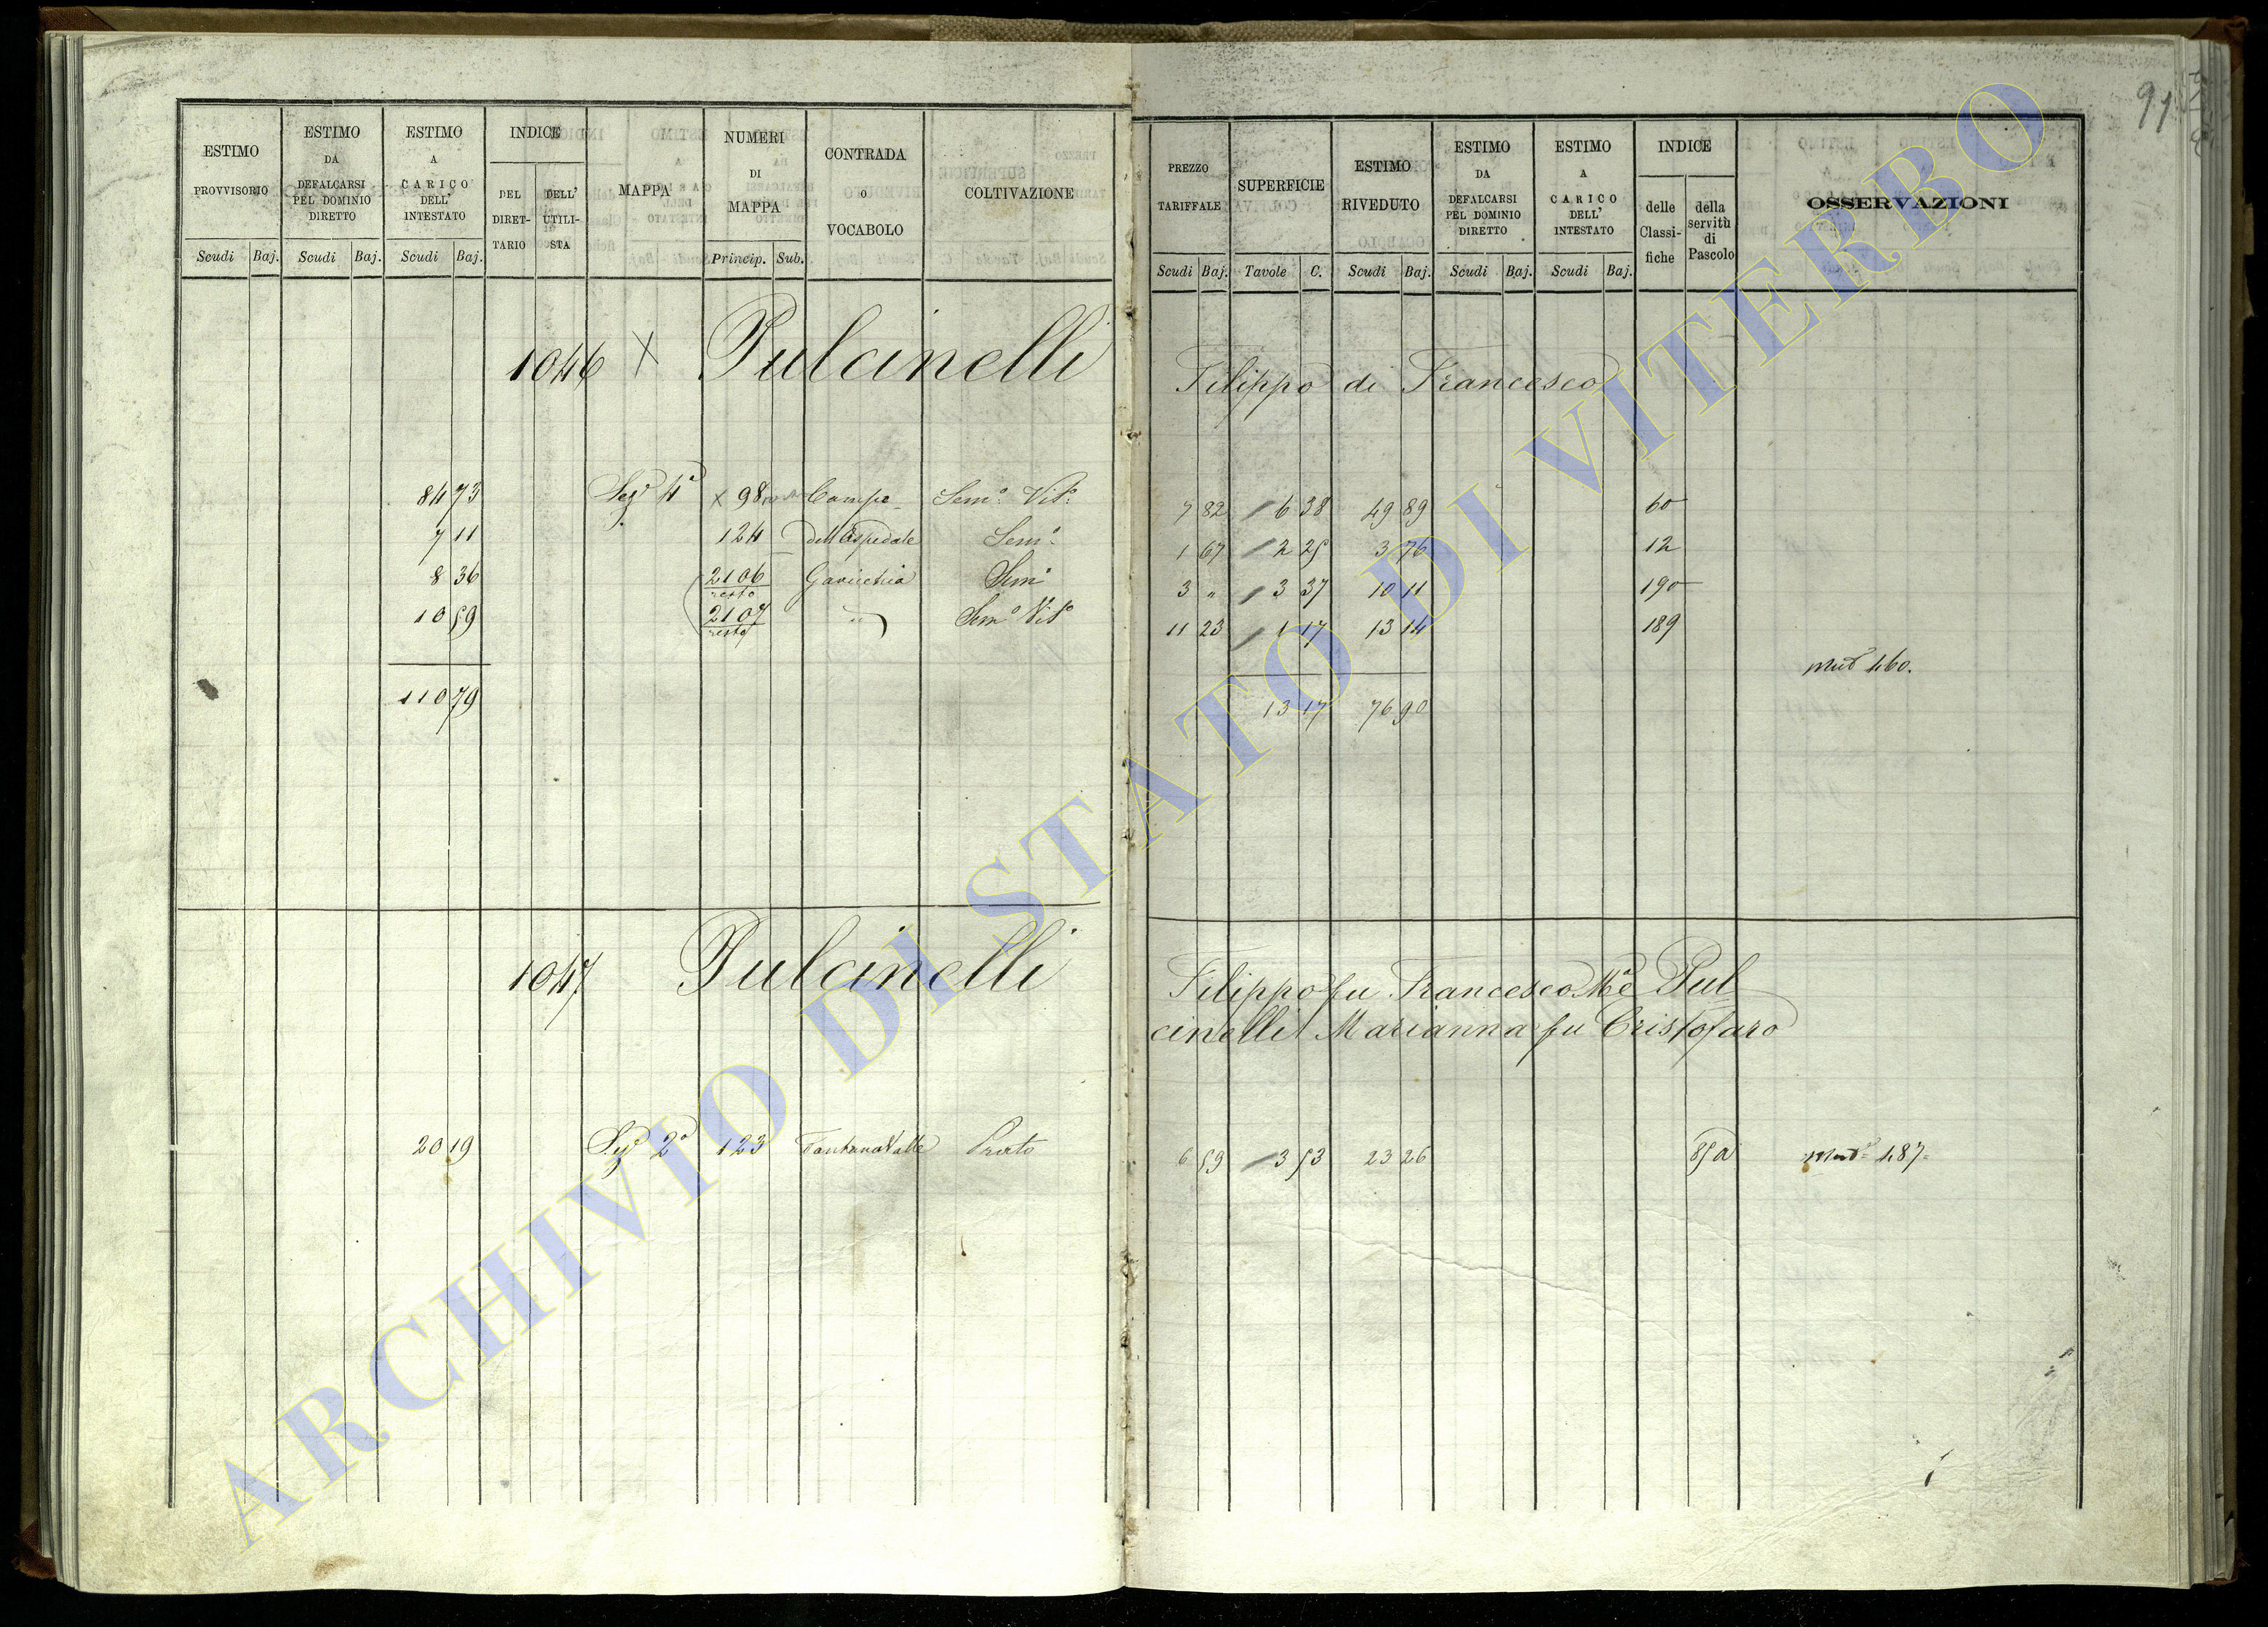 91
ESTIMO PROVVISORIO
ESTIMO DA DEFALCARSI PEL DOMINIO DIRETTO
ESTIMO A CARICO DELL' INTESTATO
INDICE
DEL DIRET-TARIO
DELL' UTILI-STA
MAPPA
NUMERI DI MAPPA
CONTRADA O VOCABOLO
COLTIVAZIONE
Scudi Baj. Scudi Baj. Scudi Baj. Princip. Sub.
PREZZO TARIFFALE
SUPERFICIE
ESTIMO RIVEDUTO
ESTIMO DA DEFALCARSI PEL DOMINIO DIRETTO
ESTIMO A CARICO DELL' INTESTATO
INDICE
delle Classi-fiche
della servitù di Pascolo
OSSERVAZIONI
Scudi Baj. Tavole C. Scudi Baj. Scudi Baj. Scudi Baj.
1046 X Pulcinelli Filippo di Francesco
84 73 Sez 4ª x 98 Campo Sem° Vit° 7 82 6 38 49 89 60
7 11 124 dell'Ospedale Sem° 1 67 2 25 3 76 12
8 36 2106 resto Gavicchia Sem° 3 " 3 37 10 11 190
10 59 2107 resto " Sem° Vit° 11 23 1 17 13 14 189
mut 460.
110 79 13 17 76 90
1047 Pulcinelli Filippo fu Francesco Pul
cinelli Marianna fu Cristofaro
20 19 Sez 2ª 123 Prato 6 59 3 53 23 26 85 a 487
ARCHIVIO DI STATO DI VITERBO